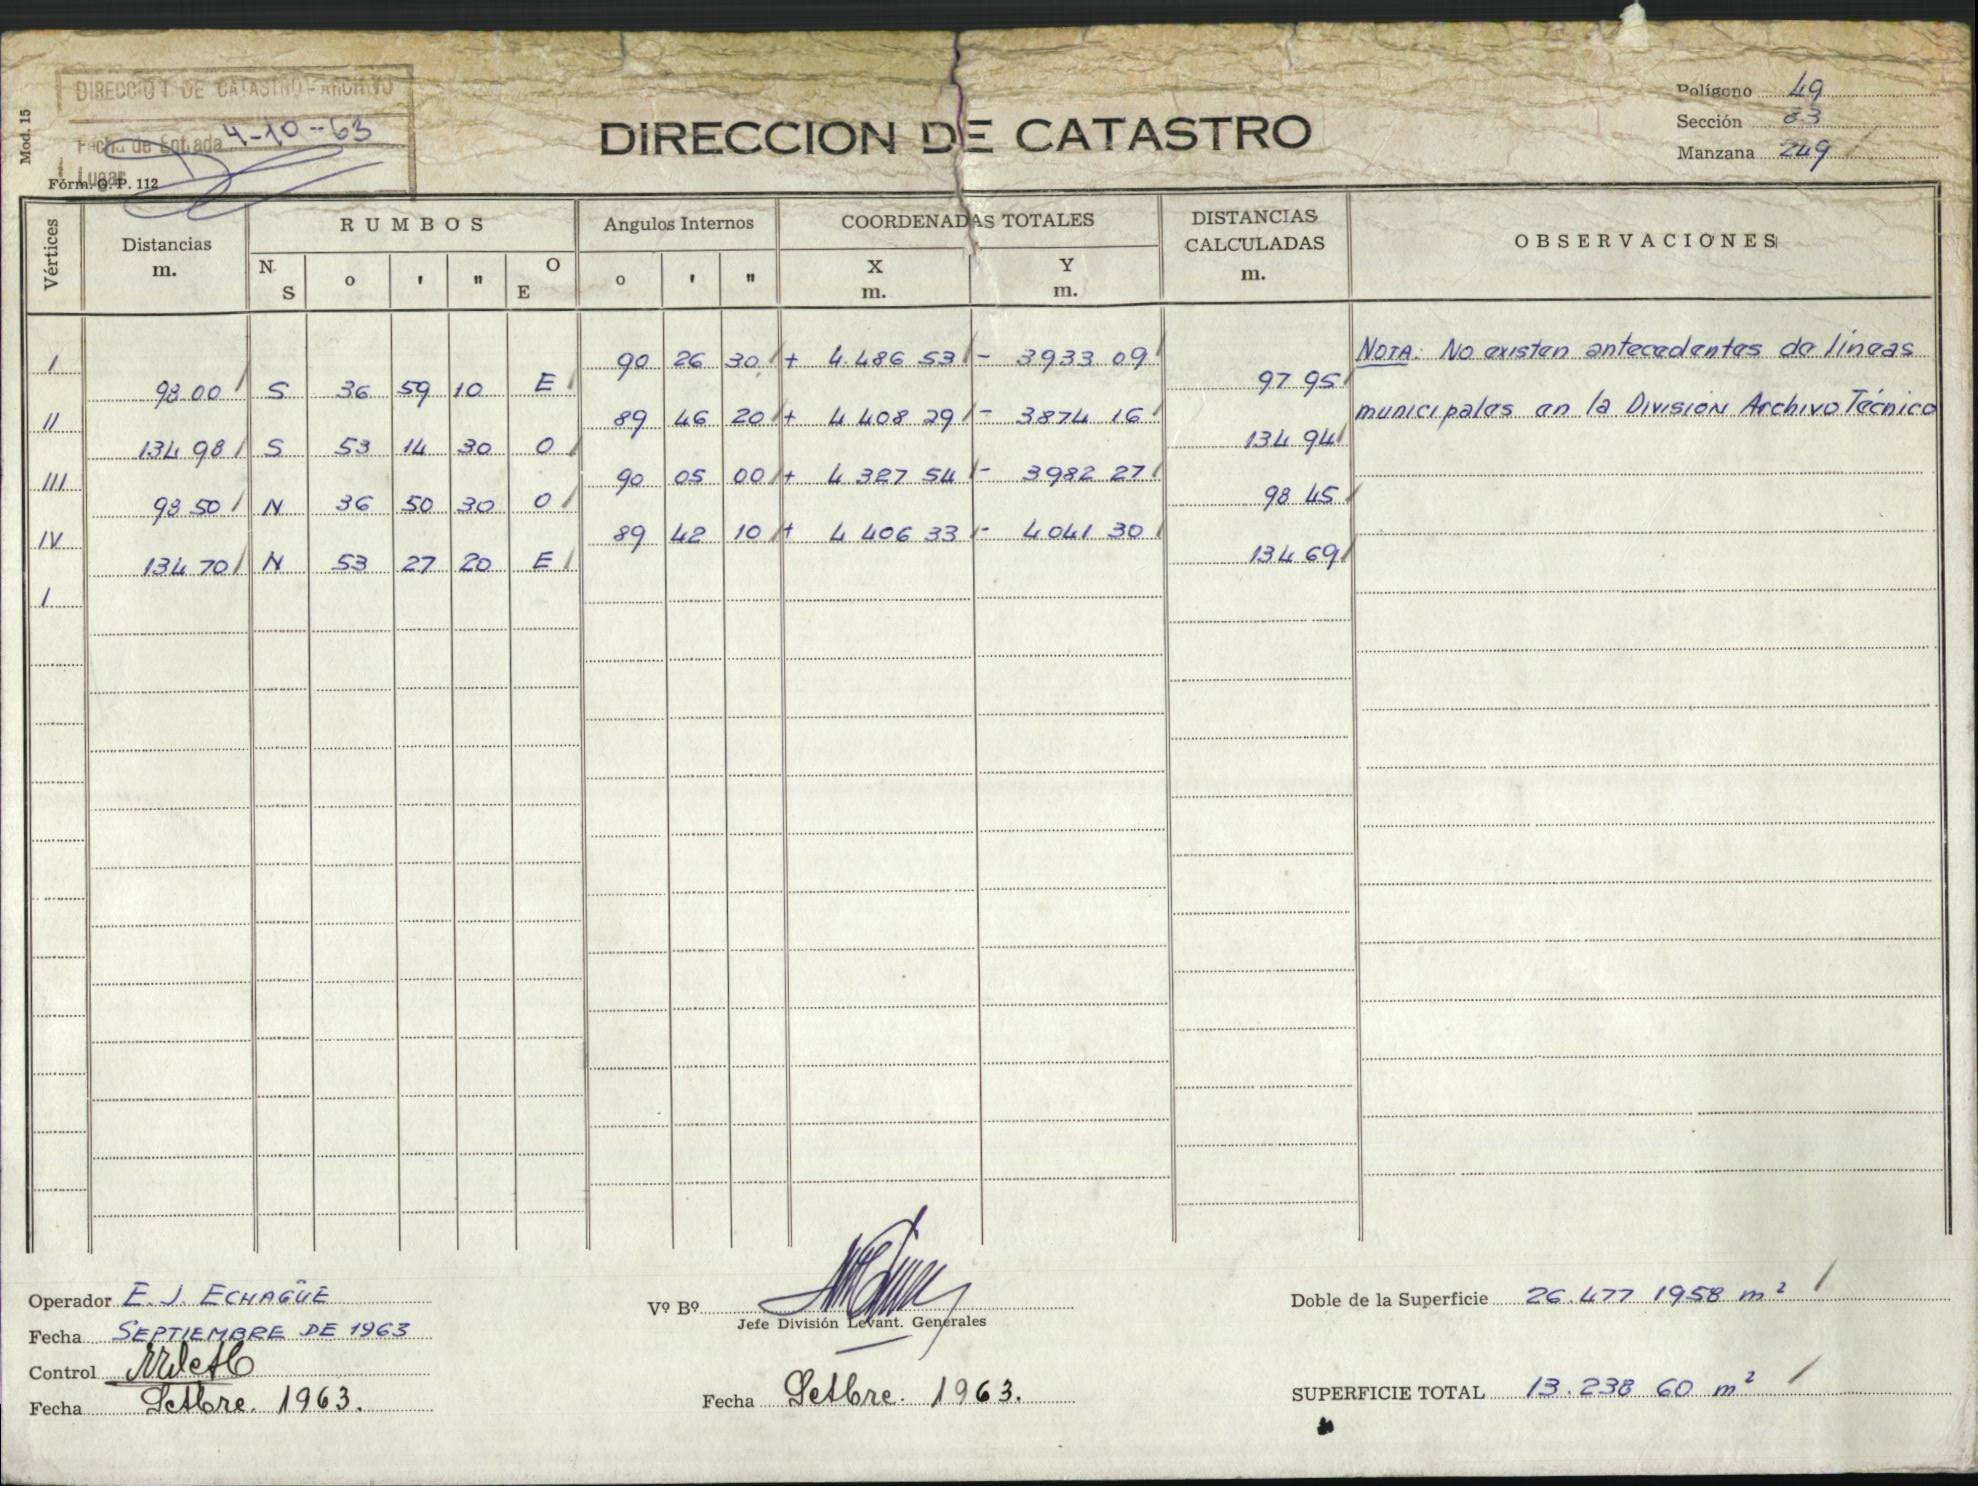 DIRECCION DE CATASTRO - ARCHIVO
Fecha de Entrada 4-10-63
Lugar
Mod. 15
Fórm. O. P. 112
DIRECCION DE CATASTRO
Polígono 49
Sección 83
Manzana 249
Vértices
Distancias m.
RUMBOS
N S ° ' " O E
Angulos Internos
° ' "
COORDENADAS TOTALES
X m. Y m.
DISTANCIAS CALCULADAS m.
OBSERVACIONES
I 90 26 30 + 4.486 53 - 3933 09
98 00 S 36 59 10 E 97 95
II 89 46 20 + 4 408 29 - 3874 16
134 98 S 53 14 30 O 134 94
III 90 05 00 + 4 327 54 - 3982 27
98 50 N 36 50 30 O 98 45
IV 89 42 10 + 4 406 33 - 4041 30
134 70 N 53 27 20 E 134 69
I
NOTA: No existen antecedentes de líneas
municipales en la DIVISION Archivo Técnico
Operador E. J. ECHAGÜE
Fecha SEPTIEMBRE DE 1963
Control
Fecha Setbre. 1963.
Vº Bº
Jefe División Levant. Generales
Fecha Setbre. 1963.
Doble de la Superficie 26.477 1958 m²
SUPERFICIE TOTAL 13.238 60 m²